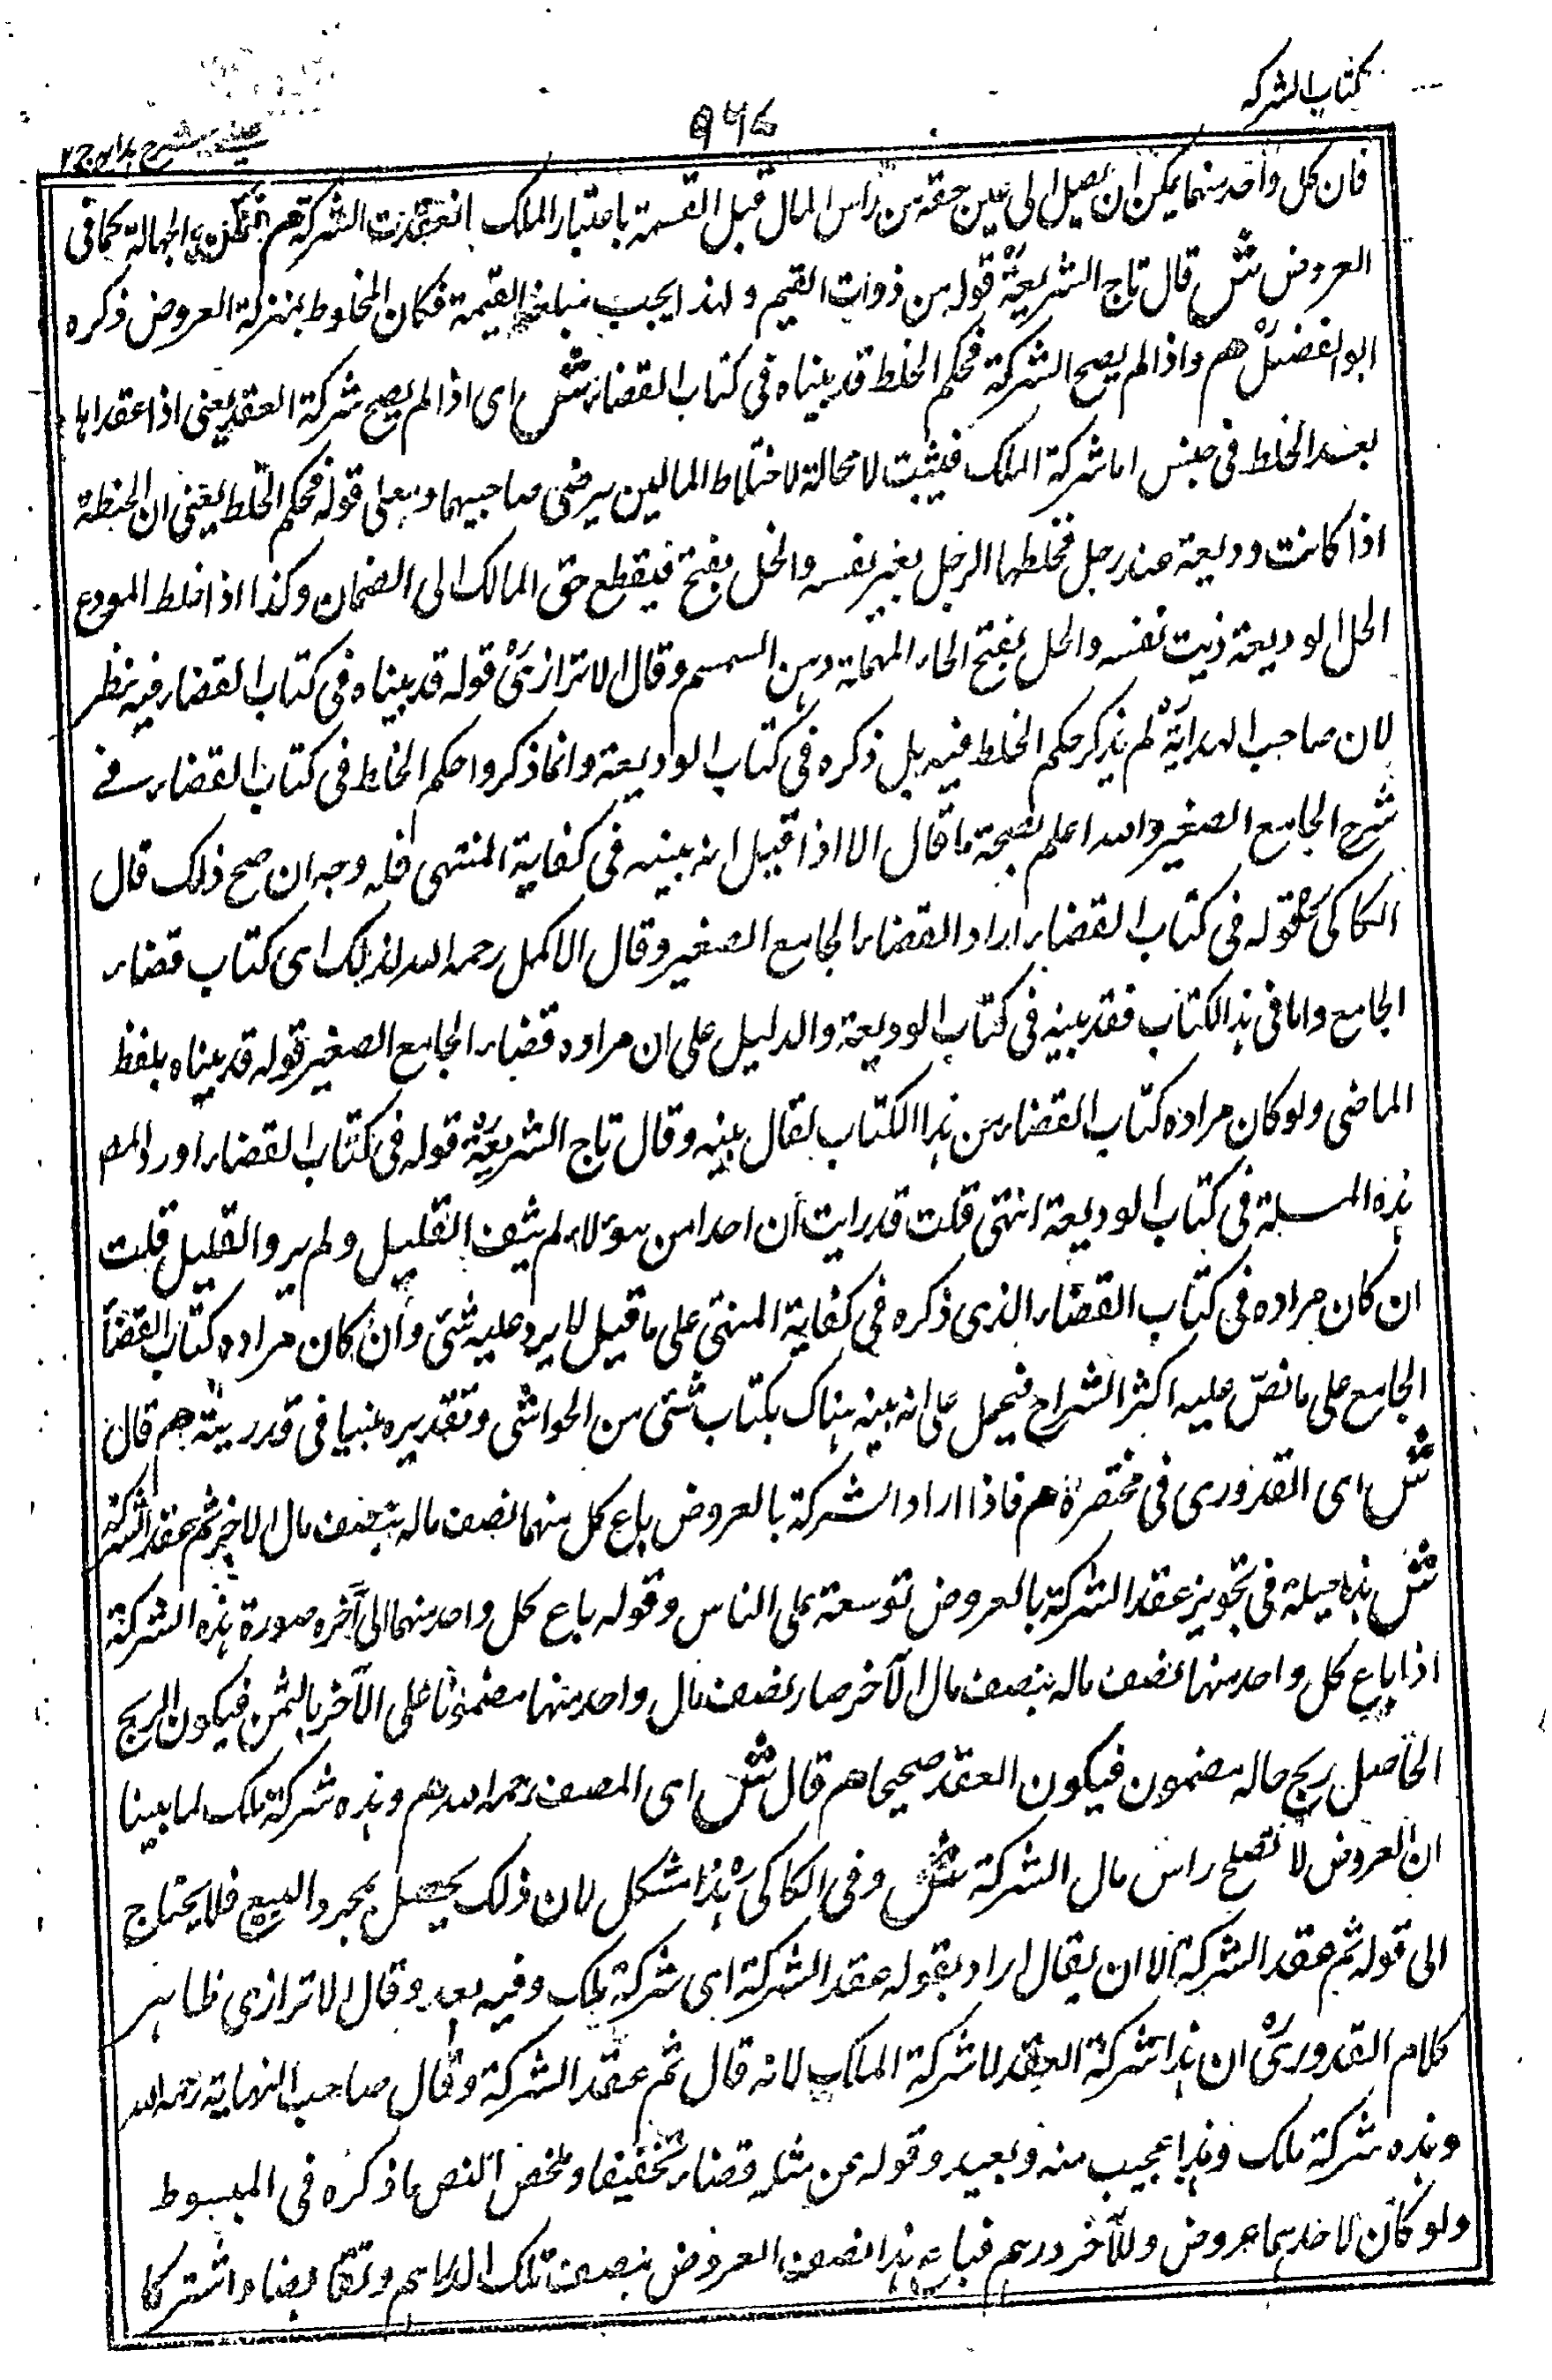 كتاب الشركة
٩٦٤
عينى شرح هدايه ج ٢
فان كل واحد منهما يمكن ان يصل الى عين حقه من راس المال قبل القسمة باعتبار الملك انعقدت الشركة هم فتمكن الجهالة كما فى
العروض ش قال تاج الشريعة قوله من ذوات القيم ولهذا يجب مبلغ القيمة فكان المخلوط بمنزلة العروض ذكره
ابو الفضل هم واذا لم يصح الشركة فحكم الخلط قد بيناه فى كتاب القضاء ش اى اذا لم يصح شركة العقد يعنى اذا عقداها
بعد الخلط فى جنس اما شركة الملك فيثبت لا محالة لاختلاط المالين برضى صاحبيهما وبعلى قوله فحكم الخلط يعنى ان الحنطة
اذا كانت وديعة عند رجل فخلطها الرجل بغير نفسه والخل بفتح فيقطع حق المالك الى الضمان وكذا اذا خلط المودع
الحل الوديعة زيت نفسه والحل بفتح الحاء المهملة دهن السمسم وقال الاترازى قوله قد بيناه فى كتاب القضاء فيه نظر
لان صاحب الهداية لم يذكر حكم الخلط فيه بل ذكره فى كتاب الوديعة وانما ذكروا حكم الخلط فى كتاب القضاء فے
شرح الجامع الصغير والله اعلم بصحة ما قال الا اذا قيل انه بينه فى كفاية المنتهى فله وجه ان صح ذلك قال
الكاكى قوله فى كتاب القضاء اراد القضاء الجامع الصغير وقال الاكمل رحمه الله لذلك اى كتاب قضاء
الجامع واما فى هذا الكتاب فقد بينه فى كتاب الوديعة والدليل على ان مراده قضاء الجامع الصغير قوله قد بيناه بلفظ
الماضى ولو كان مراده كتاب القضاء من هذا الكتاب لقال بينه وقال تاج الشريعة قوله فى كتاب القضاء اورد المص
هذه المسلة فى كتاب الوديعة انتهى قلت قد رايت ان احدا من هؤلاء لم يشف الغليل ولم يرو الغليل قلت
ان كان مراده فى كتاب القضاء الذى ذكره فى كفاية المنتهى على ما قيل لا يرد عليه شئ وان كان مراده كتاب القضاء
الجامع على ما نص عليه اكثر الشراح فيحمل على انه بينه هناك بكتاب شتى من الحواشى وتقديره مبنيا فى قدر بينه هم قال
ش اى القدورى فى مختصره هم فاذا اراد الشركة بالعروض باع كل منهما نصف ماله بنصف مال الاخر ثم عقد الشركة
ش هذه حيلة فى تجويز عقد الشركة بالعروض توسعة على الناس وقوله باع كل واحد منهما الى آخره صورة هذه الشركة
اذا باع كل واحد منهما نصف ماله بنصف مال الآخر صار نصف مال واحد منهما مضمونا على الآخر بالثمن فيكون الربح
الحاصل ربح ماله مضمون فيكون العقد صحيحا هم قال ش اى المصنف رحمه الله هم وهذه شركة ملك لما بينا
ان العروض لا تصلح راس مال الشركة ش وفى الكاكى هذا مشكل لان ذلك يحصل بمجرد البيع فلا يحتاج
الى قوله ثم عقد الشركة الا ان يقال اراد بقوله عقد الشركة اى شركة ملك وفيه بعد وقال الاترازى ظاهر
كلام القدورى ان هذا شركة العقد لا شركة الملك لانه قال ثم عقد الشركة وقال صاحب النهاية رحمه الله
وهذه شركة ملك وهذا عجيب منه وبعيد وقوله عن مثله قضاء تخفيفا ومخض النص ما ذكره فى المبسوط
ولو كان لاحدهما عروض وللآخر درهم فباعه هذا نصف العروض بنصف تلك الدراهم وتقابضا واشتركا